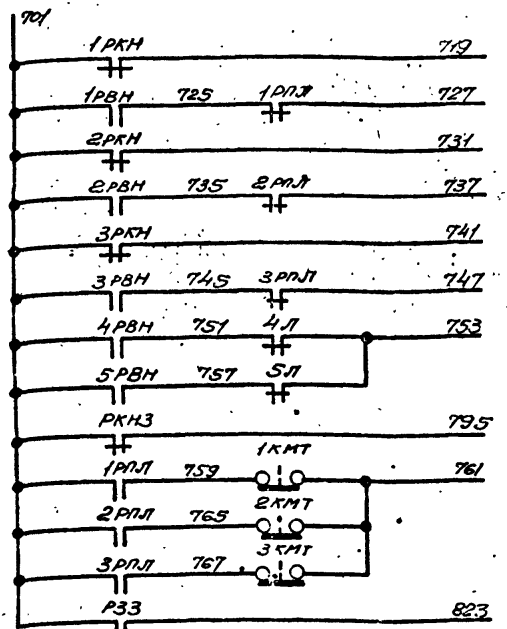 701
1РКН 719
1РВН 725 1РПЛ 727
2РКН 731
2РВН 735 2РПЛ 737
3РКН 741
3РВН 745 3РПЛ 747
4РВН 751 4Л 753
5РВН 757 5Л
РКНЗ 795
1КМТ
1РПЛ 759 761
2КМТ
2РПЛ 765
3КМТ
3РПЛ 767
РЗЗ 823